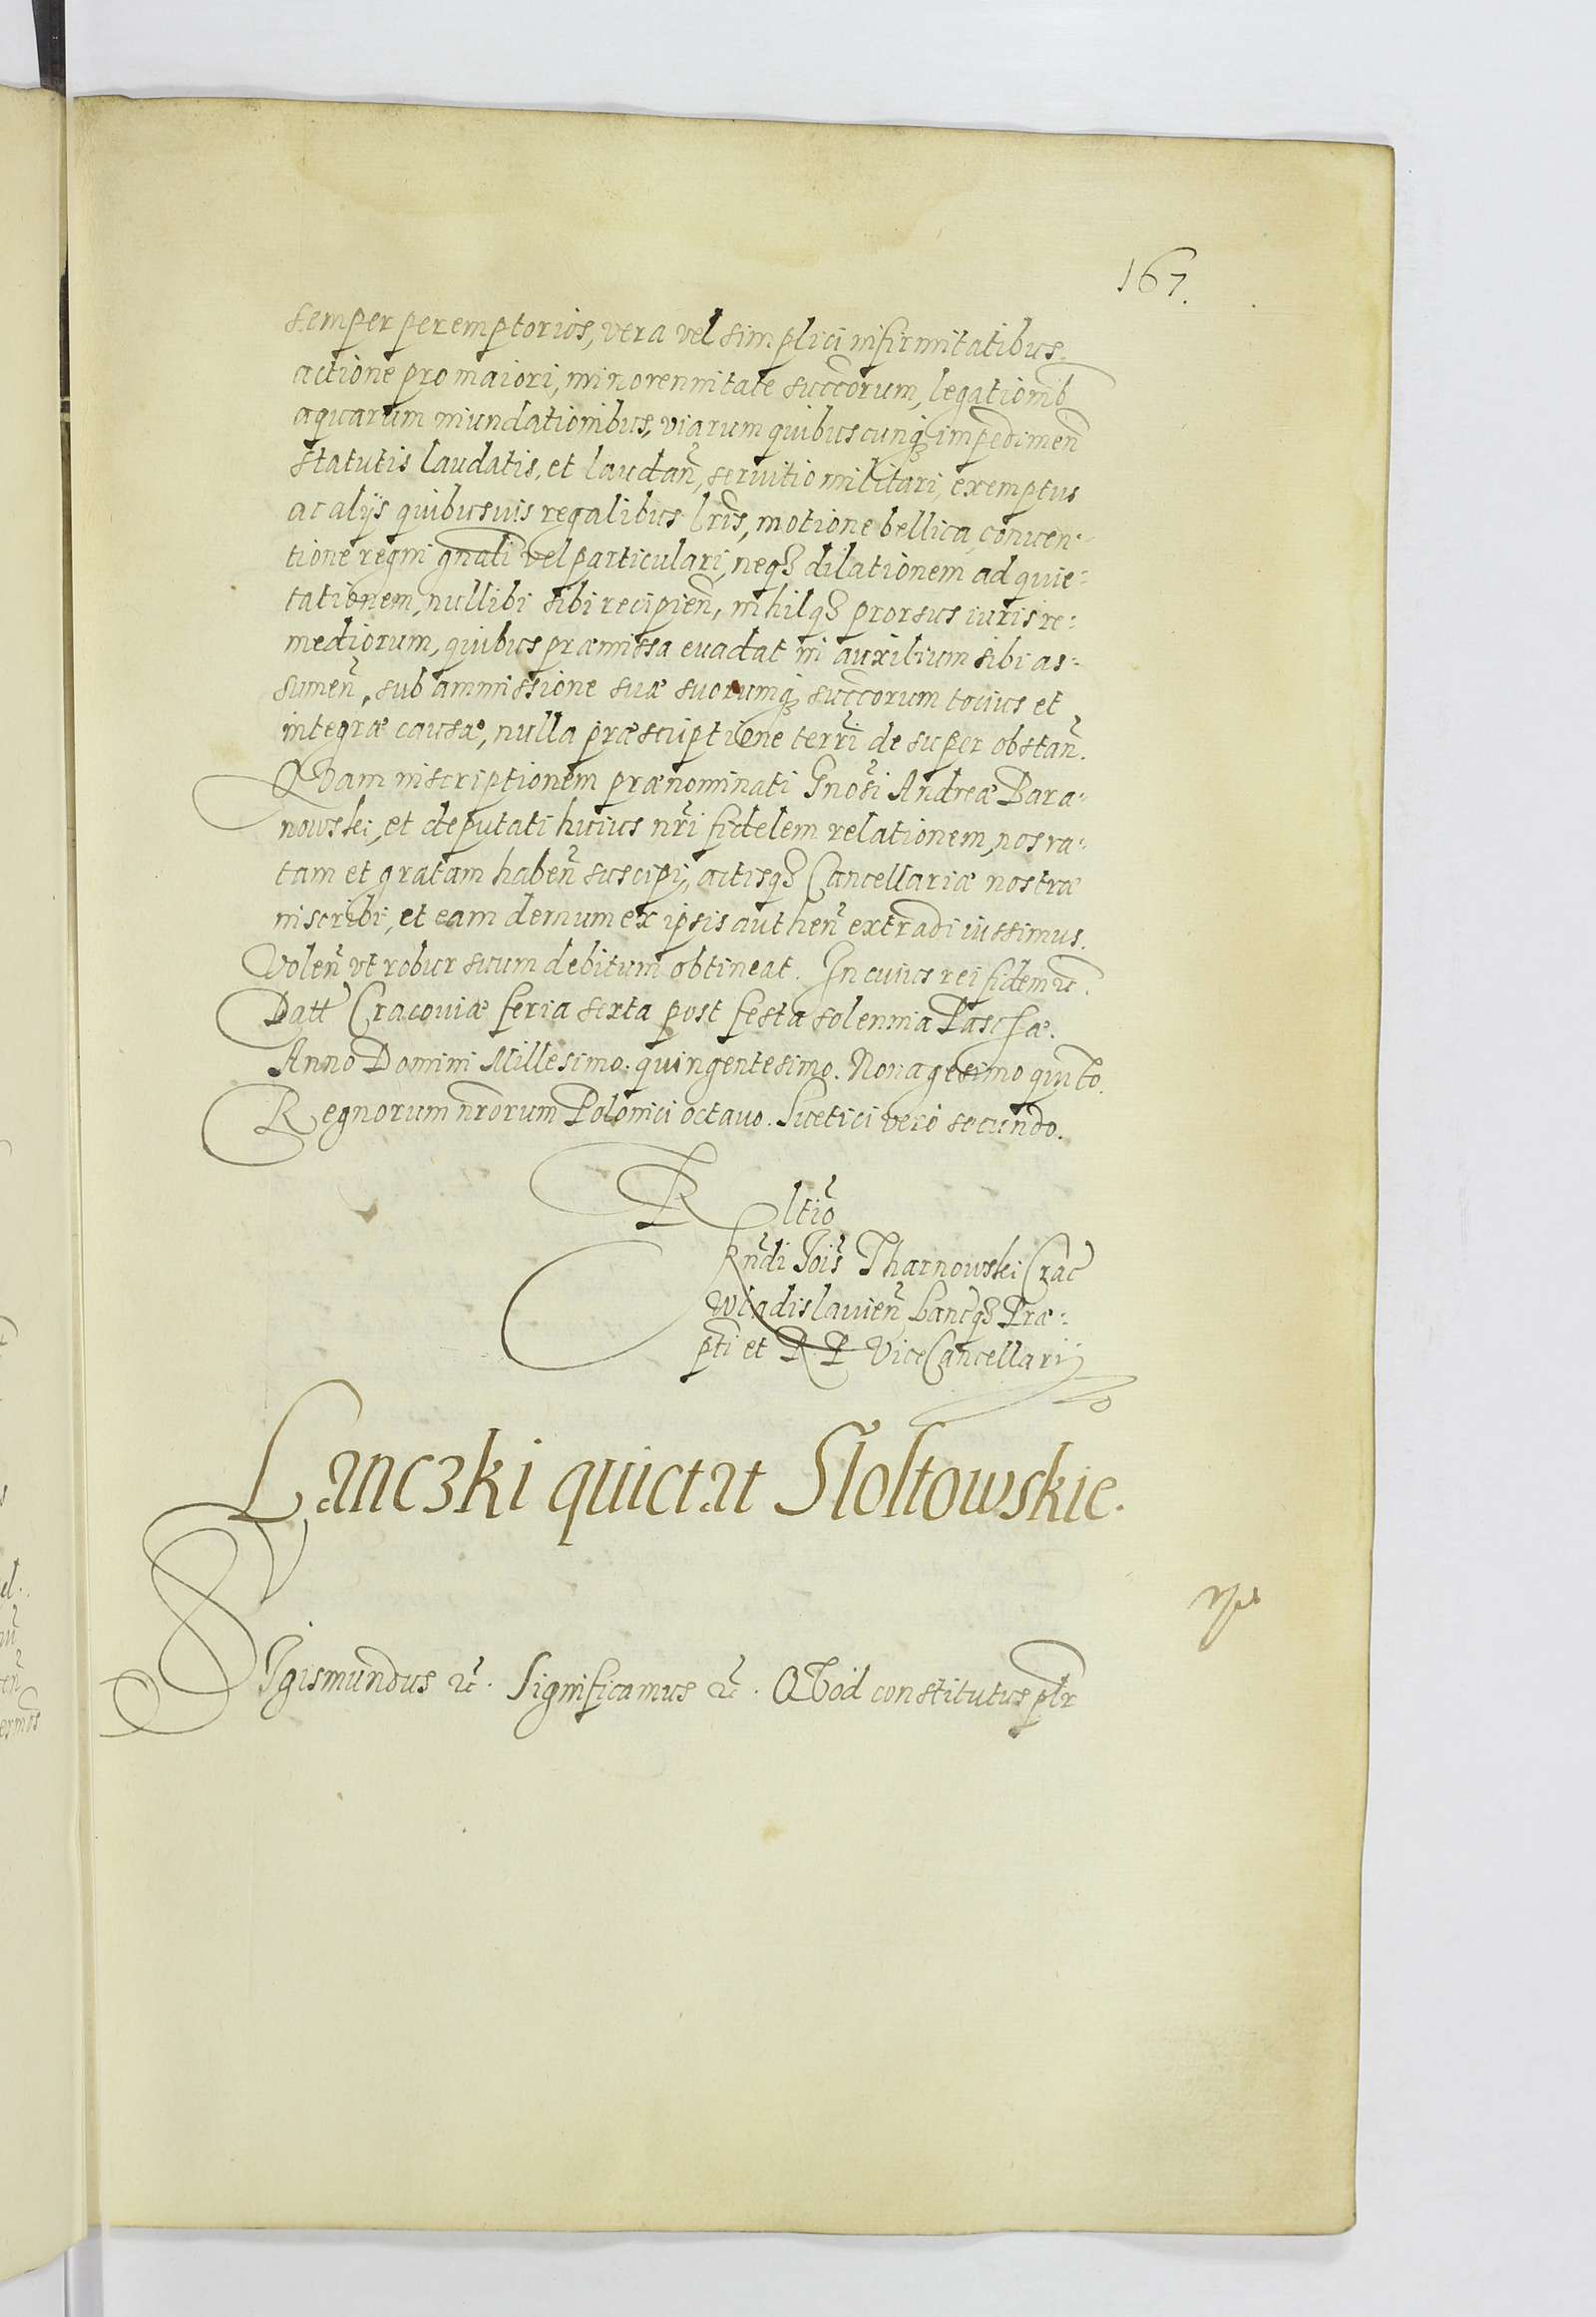 167.
semper peremptorios, vera vel simplici infirmitatibus
actione pro maiori, minorennitate succorum, legationib
aquarum inundationibus, viarum quibuscunq impedimen
statutis laudatis, et laudan, seruitio militari, exemptus
ac alijs quibusuis regalibus lris, motione bellica, conuen-
tione regni gnali vel particulari, neqз dilationem ad quie-
tationem, nullibi sibi recipien, nihilqз prorsus iuris re-
mediorum, quibus præmissa euadat in auxilium sibi as-
sumen, sub ammissione suæ suorumq succorum tocius et
integræ causæ, nulla præscriptione terri de super obstan.
QVam inscriptionem prænominati Gnosi Andreæ Bara-
nowski, et deputati huius nri fidelem relationem, nos ra-
tam et gratam haben suscipi, actisqз Cancellariæ nostræ
inscribi, et eam demum ex ipsis authen extradi iussimus.
Volen vt robur suum debitum obtineat. In cuius rei fidem etc.
Datt Cracouiæ feria sexta post festa solennia Paschæ.
Anno Domini Millesimo. quingentesimo. Nonagesimo quinto.
Regnorum nrorum Polonici octauo. Suetici vero secundo.
Rltio
Rndi Jois Tharnowski Crac
Wladislauien Lancqз Præ-
pti et R. P ViceCancellarij
Lanczki quictat Sloltowskie.
SIgismundus etc. Significamus etc. QVod constitutus pltr